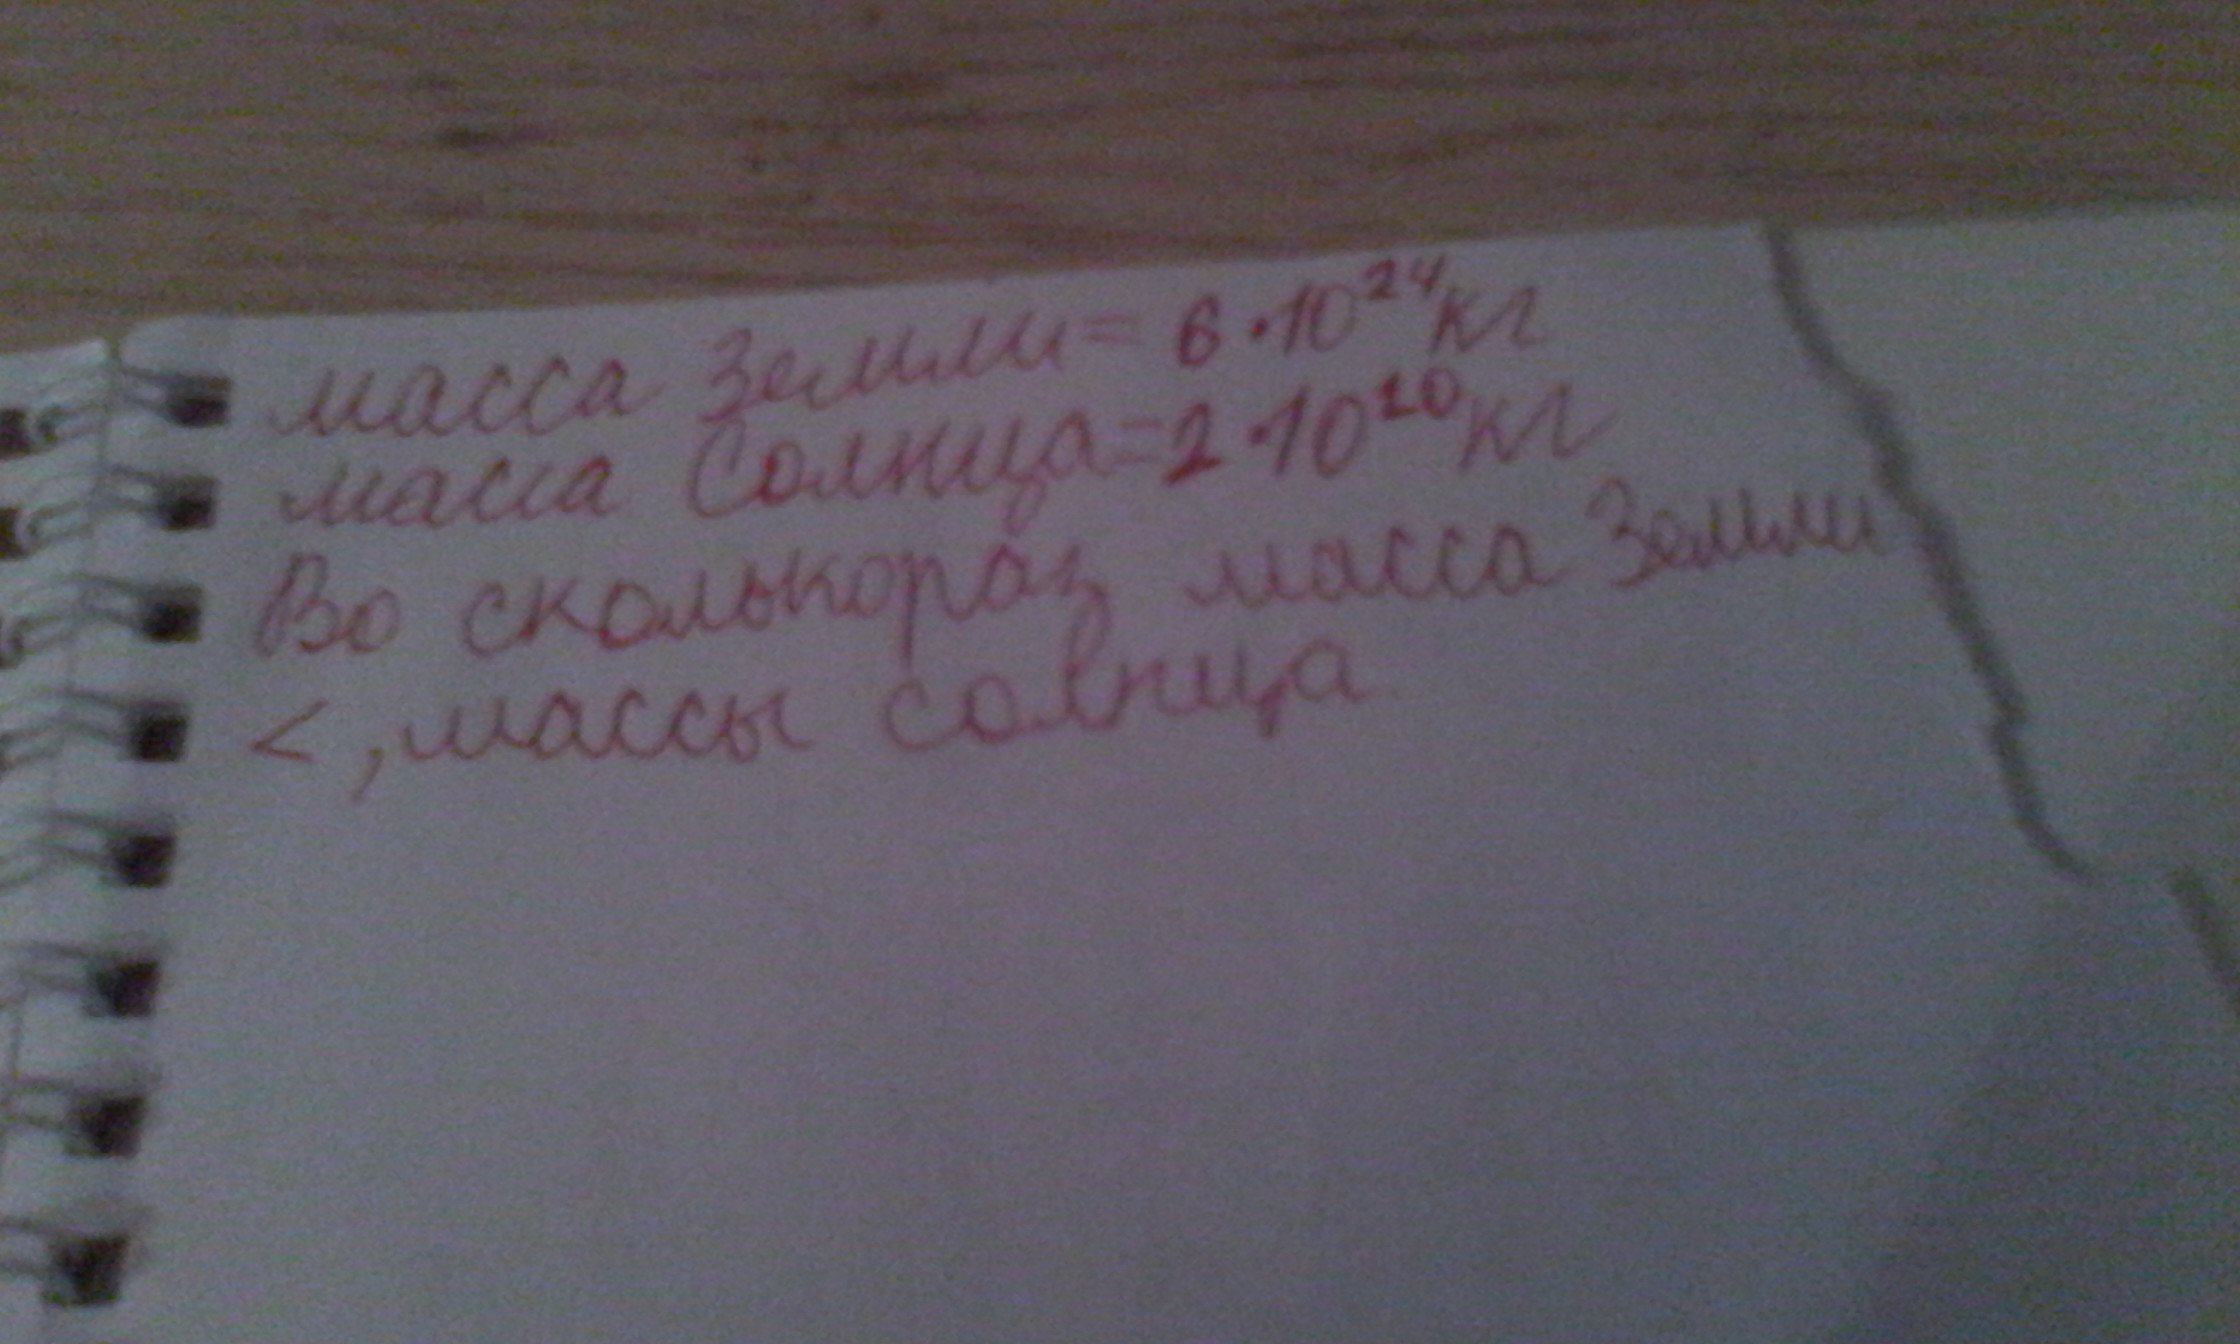 масса Земли = 6 · 10²⁴ кг
масса Солнца = 2 · 10²⁰ кг
Во сколькораз масса Земли
<, массы солнца